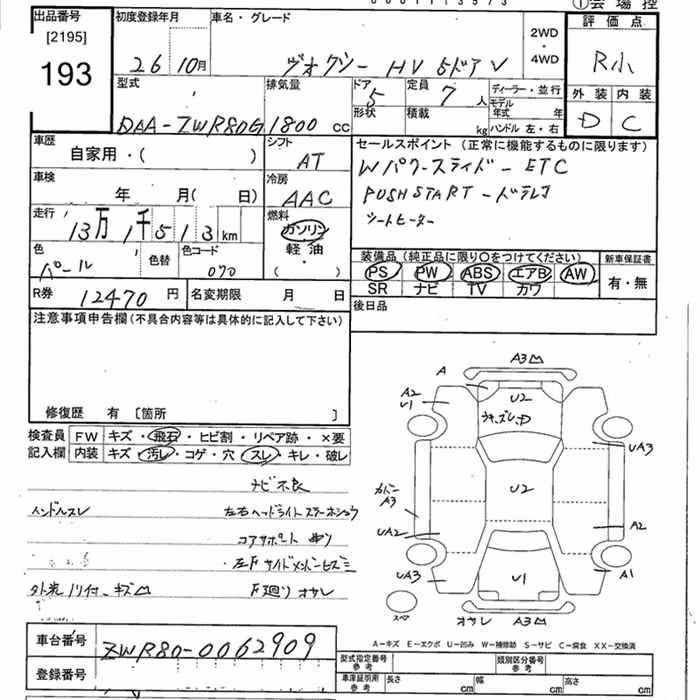 ①会場控
出品番号
[2195]
193
初度登録年月
26 10月
車名・グレード
ヴォクシー HV 5ドア V
2WD
・
4WD
評価点
R小
外装 内装
D C
型式
DAA-ZWR80G
排気量
1800 cc
ドア
5
形状
定員
7 人
積載
kg
ディーラー・並行
モデル
年式 年
ハンドル 左・右
車歴
自家用・( )
シフト
AT
車検
年 月( 日)
冷房
AAC
走行
13万 1千 5 1 3 km
燃料
ガソリン
軽油
( ・ )
色
パール
色替
色コード
070
R券 12470 円
名変期限 月 日
セールスポイント (正常に機能するものに限ります)
Wパワースライドー ETC
PUSH START -ドラレコ
シートヒーター
装備品 (純正品に限り〇をつけてください)
PS PW ABS エアB AW
SR ナビ TV カワ
新車保証書
有・無
後日品
注意事項申告欄(不具合内容等は具体的に記入して下さい)
修復歴 有 〔箇所 〕
検査員
記入欄
FW キズ・飛石・ヒビ割・リペア跡・×要
内装 キズ・汚レ・コゲ・穴・スレ・キレ・破レ
ナビ不良
ハンドルスレ
左右ヘッドライトステーホシュウ
コアサポート
左F サイドメンバー
外装 キズ
下廻り サビ
A3
A
A2
U1
U2
UA3
カバー
A3
U2
UA2
A2
UA3
U1
A1
スペア
A3
A－キズ E－エクボ U－凹み W－補修跡 S－サビ C－腐食 XX－交換済
車台番号
ZWR80-0062909
登録番号
型式指定番号
参考
類別区分番号
参考
車庫証明用
参考
長さ cm
幅 cm
高さ cm